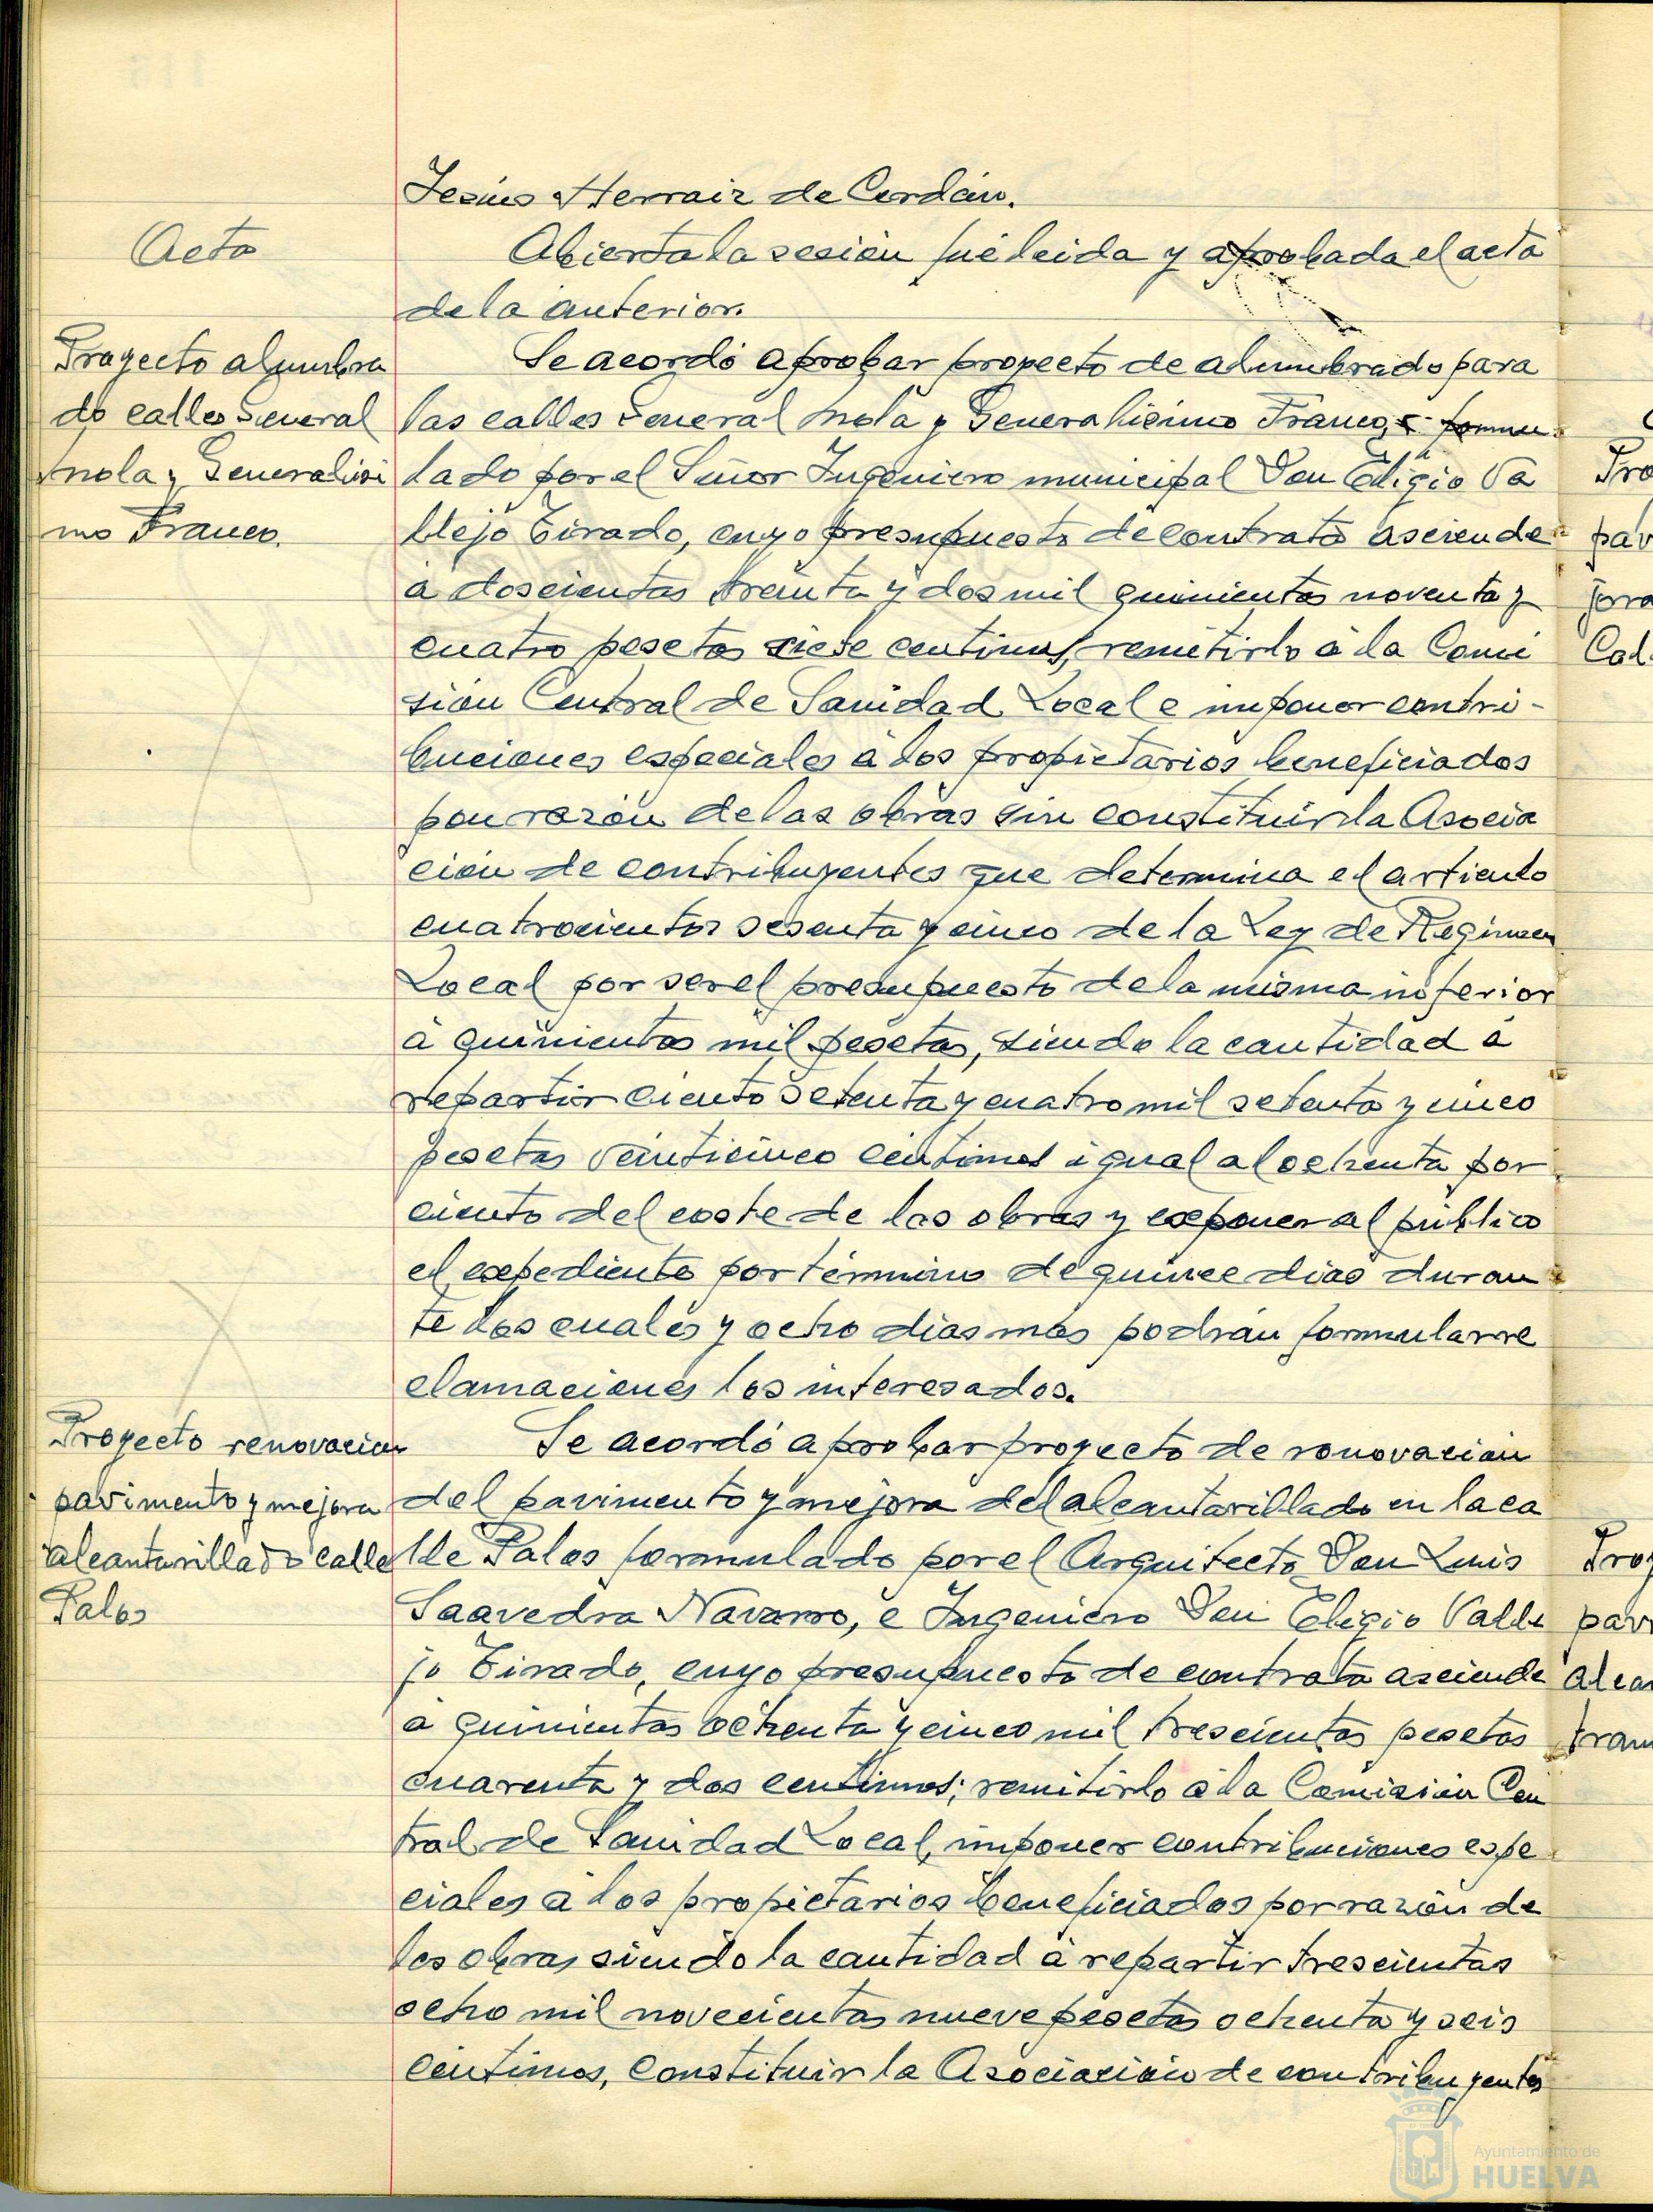 Jesús Herraiz de Cerdán.
Acta
Abierta la sesión fué leida y aprobada el acta
de la anterior.
Proyecto alumbra
do calles General
Mola y Generalisi
mo Franco.
Se acordó aprobar proyecto de alumbrado para
las calles General Mola y Generalisimo Franco, formu
lado por el Señor Ingeniero municipal Don Eligio Va
llejo Tirado, cuyo presupuesto de contrata asciende
a doscientas treinta y dos mil quinientas noventa y
cuatro pesetas siete centimos, remitirlo á la Comi
sión Central de Sanidad Local e imponer contri-
buciones especiales á los propietarios beneficiados
por razón de las obras sin constituir la Asocia
ción de contribuyentes que determina el articulo
cuatrocientos sesenta y cinco de la Ley de Regimen
Local por ser el presupuesto de la misma inferior
á quinientas mil pesetas, siendo la cantidad á
repartir ciento setenta y cuatro mil setenta y cinco
pesetas veinticinco centimos igual al ochenta por
ciento del coste de las obras y exponer al público
el expediente por término de quince dias duran
te los cuales y ocho dias más podrán formular re
clamaciones los interesados.
Proyecto renovacion
pavimento y mejora
alcantarillado calle
Palos
Se acordó aprobar proyecto de renovación
del pavimento y mejora del alcantarillado en la ca
lle Palos formulado por el Arquitecto Don Luis
Saavedra Navarro, e Ingeniero Don Eligio Valle
jo Tirado, cuyo presupuesto de contrata asciende
a quinientas ochenta y cinco mil trescientas pesetas
cuarenta y dos centimos; remitirlo á la Comisión Cen
tral de Sanidad Local, imponer contribuciones espe
ciales á los propietarios beneficiados por razón de
las obras siendo la cantidad á repartir trescientas
ocho mil novecientas nueve pesetas ochenta y seis
centimos, constituir la Asociación de contribuyentes
Pro
pav
jora
Cal
Proy
pav
alcan
tram
Ayuntamiento de
HUELVA